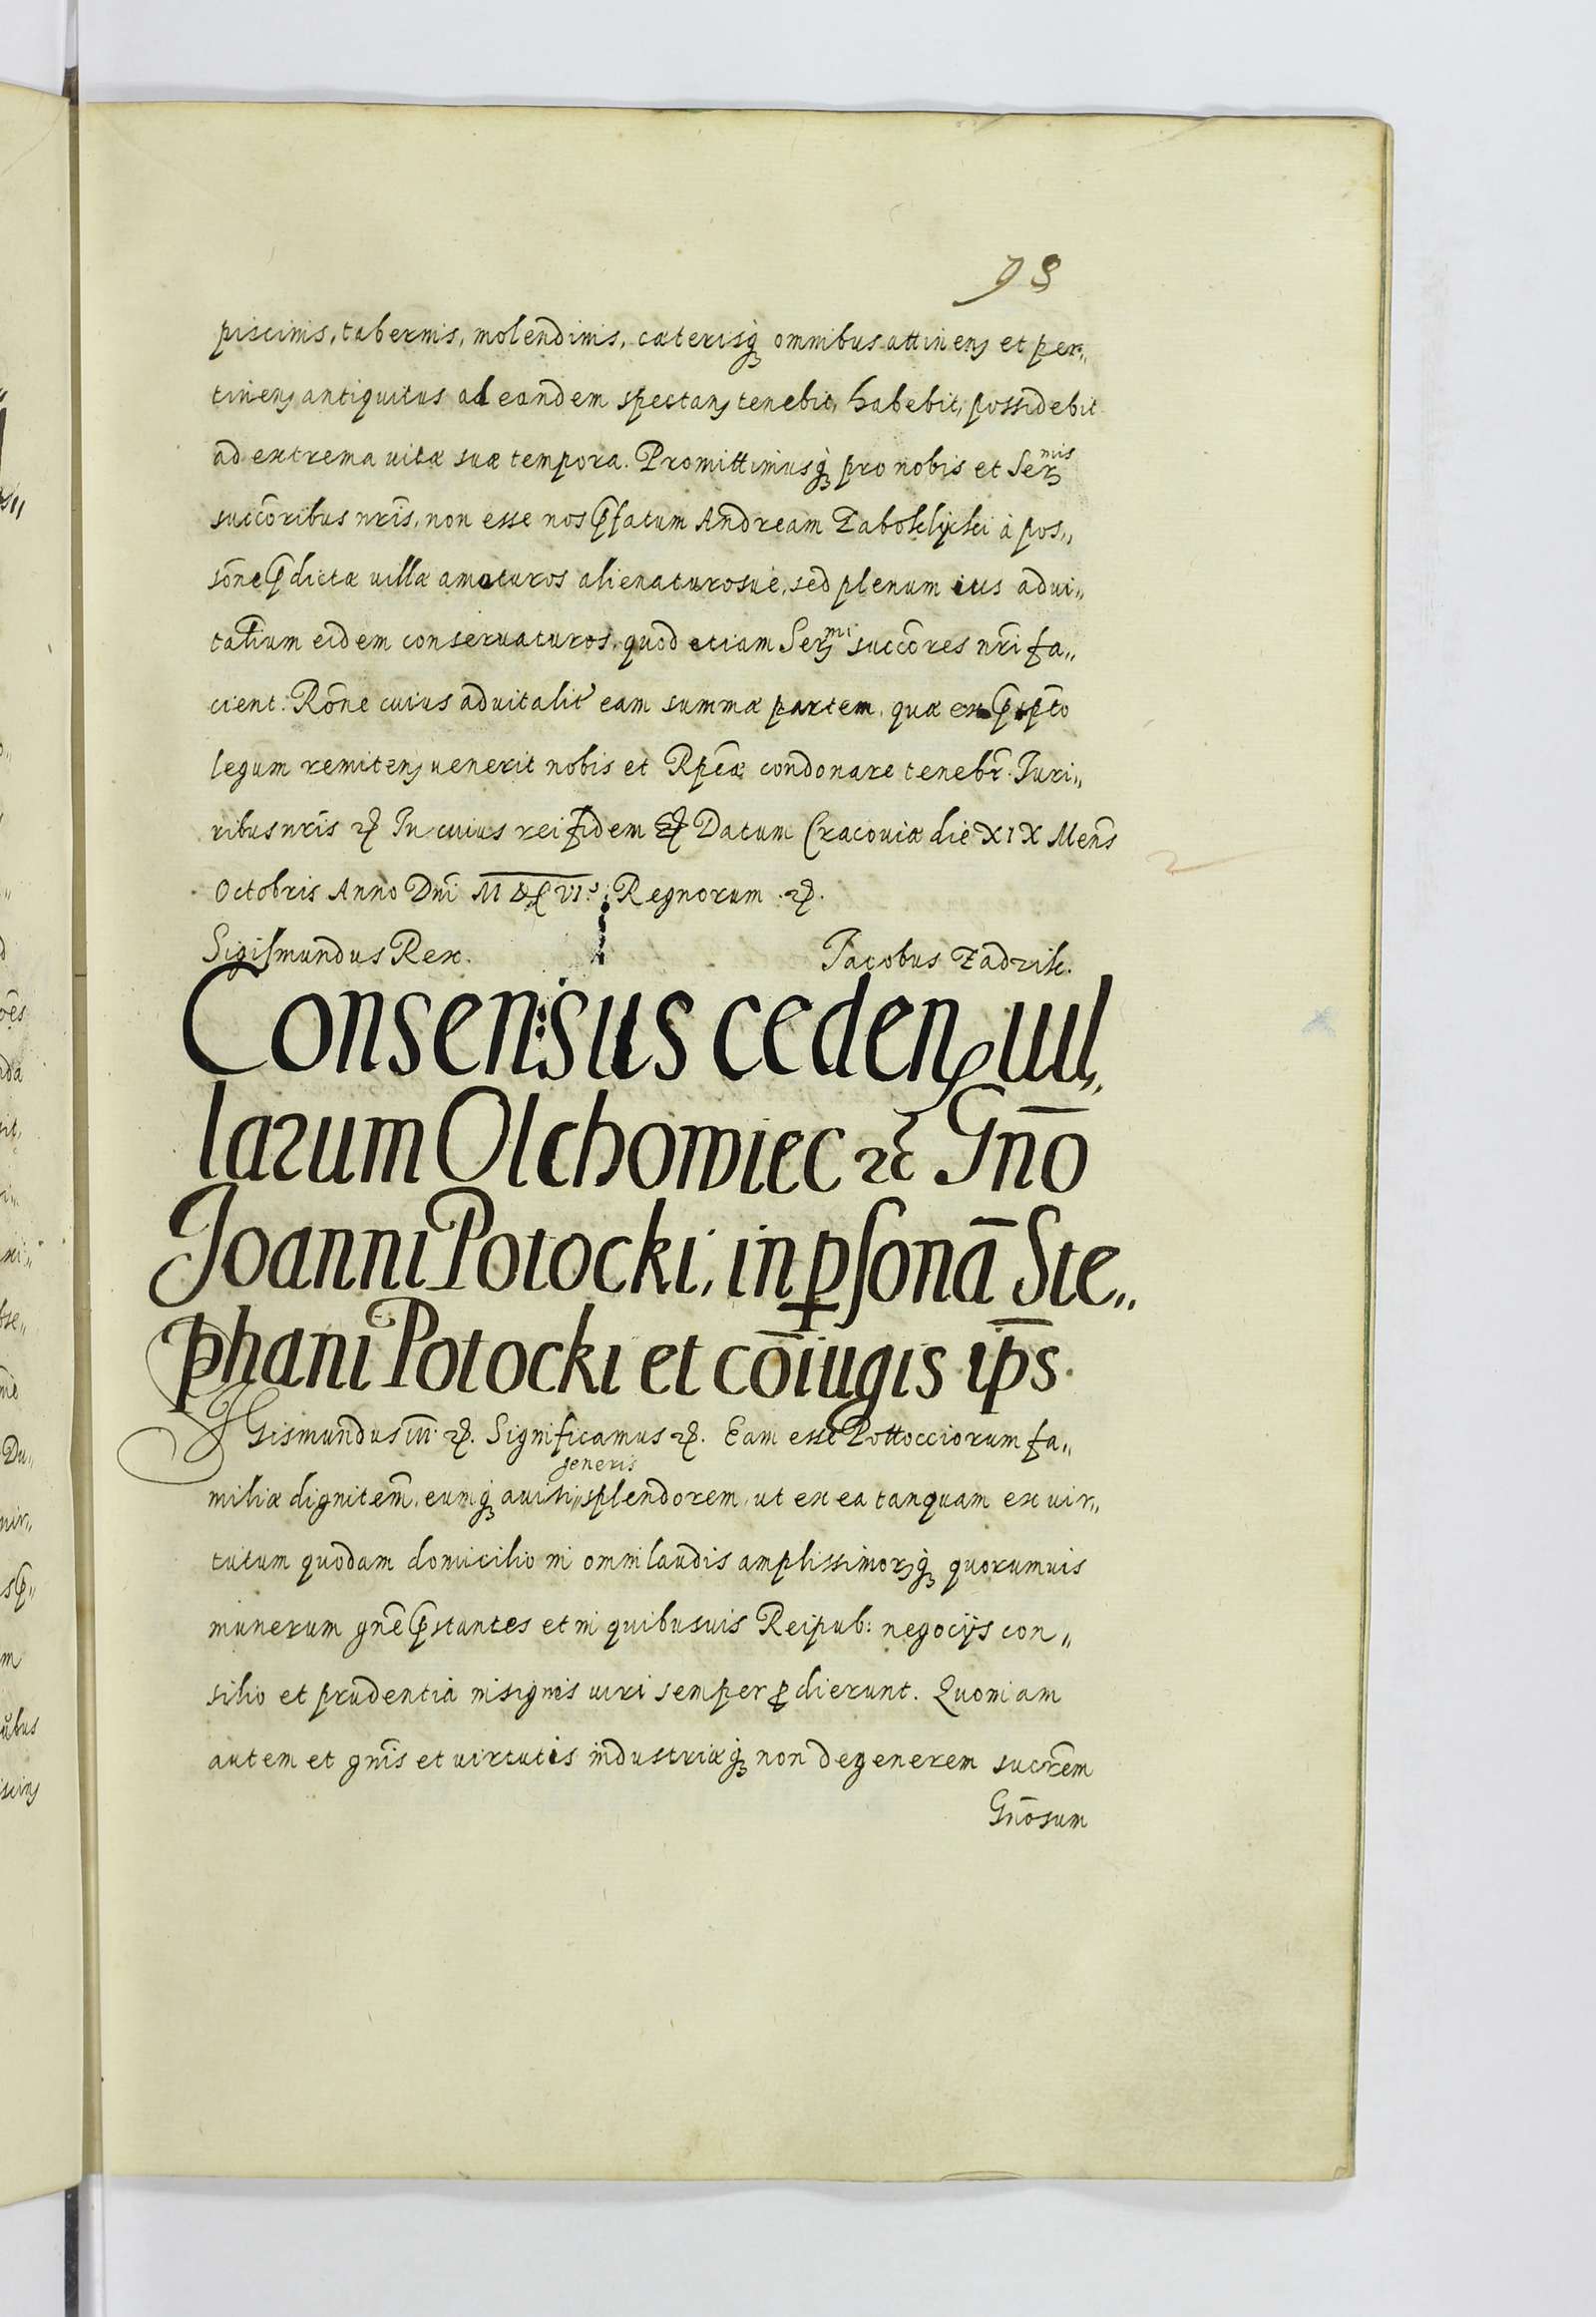 98
piscinis, tabernis, molendinis, cæterisq₃ omnibus attinenʒ et per„
tinenʒ antiquitus ad eandem spectanʒ tenebit, habebit, possidebit
ad extrema vitæ suæ tempora. Promittimusq₃ pro nobis et Serᵐⁱˢ
succōribus nr̄is, non esse nos p̄fatum Andream Zaboklicki à pos„
sōne p̄dictæ villæ amoturos alienaturosue, sed plenum ius advi„
talium eidem conservaturos, quod etiam Serᵐⁱ succōres nr̄i fa„
cient. Rōne cuius advitalit' eam summæ partem, quæ ex p̄sp̄to
legum remitenʒ venerit nobis et Rp̄cæ condonare tenebr̄. Juri„
ribus nr̄is ꝛc̄ In cuius rei fidem ꝛc̄ Datum Cracoviæ die XIX Mens̄
Octobris Anno Dn̄i Regnorum ꝛc̄.
Sigismundus Rex. Jacobus Zadzik.
Consensus cedenʒ vil„
larum Olchowiec ꝛc̄ Gn̄o
Joanni Potocki, in ꝑsonā Ste„
phani Potocki et cōiugis ip̄s.
Sigismundus III ꝛc̄. Significamus ꝛc̄. Eam esse Pottocciorum fa„
miliæ dignitem̄, eumq₃ aviti generis splendorem, ut ex ea tanquam ex vir„
tutum quodam domicilio in omni laudis amplissimorʒq₃ quorumvis
munerum gn̄e p̄stantes et in quibusvis Reipub: negocijs con„
silio et prudentia insignis viri semper ꝓdierunt. Quoniam
autem et gn̄is et virtutis industriæq₃ non degenerem sucr̄em
Gn̄osum